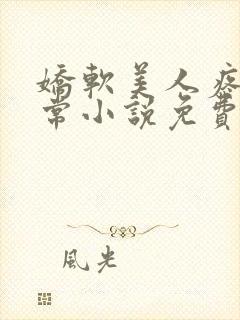 嬌軟美人疼
常小說免費
風光